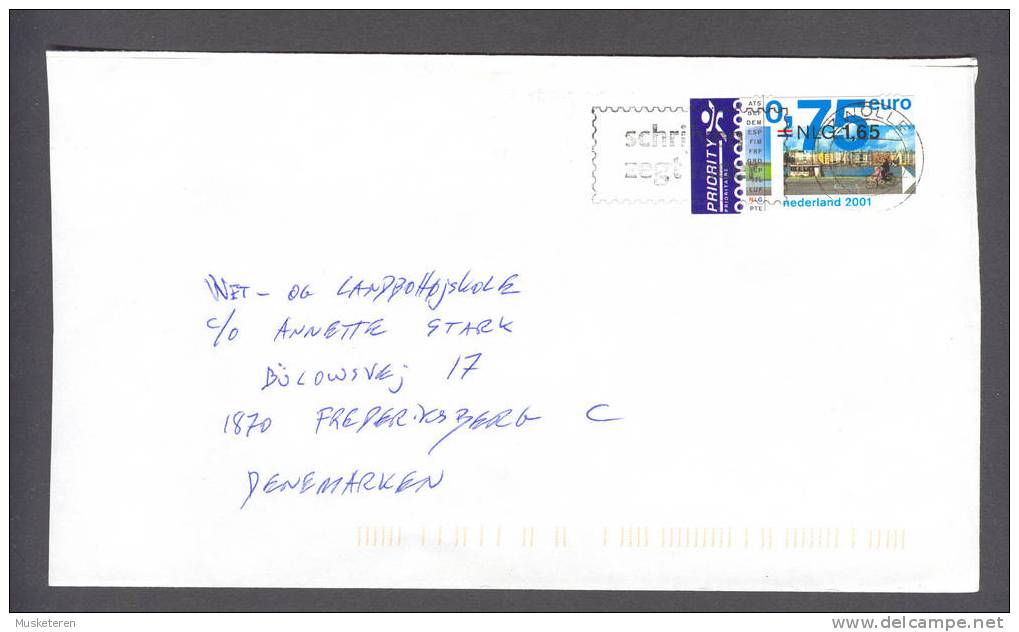 ATS
BEF
DEM
ESP
FIM
FRF
GRD
IEP
ITL
LUF
NLG
PTE
PRIORITY
PRIORITAIRE
0,75 euro
= NLG 1,65
nederland 2001
schri
zegt
Wet- og Landbohøjskole
c/o Annette Stark
Bülowsvej 17
1870 Frederiksberg C
Denemarken
Musketeren
www.delcampe.net